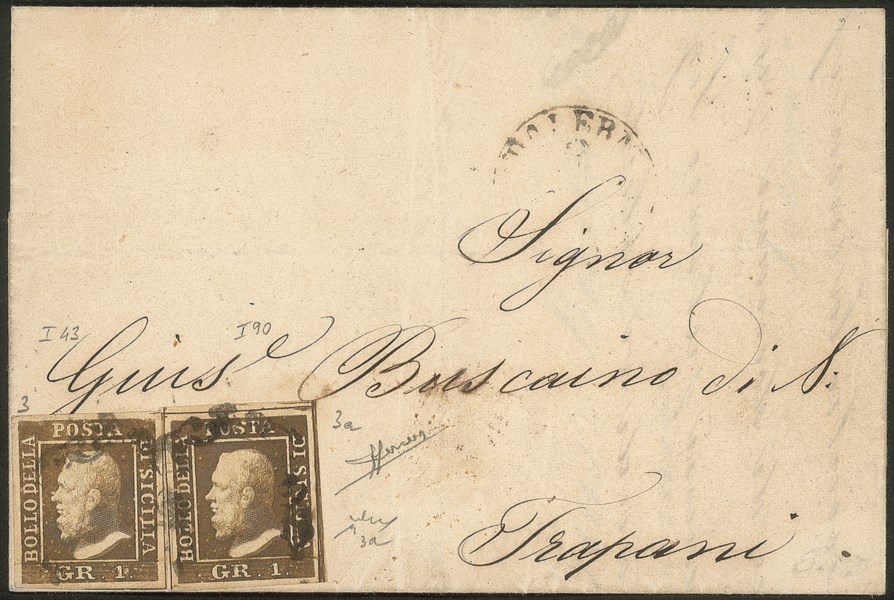 Signor
I 43 I 90
Giusᵉ Buscaino di N:
3
3a
POSTA
BOLLO DELLA
DI SICILIA
GR. 1.
POSTA
BOLLO DELLA
DI SICILIA
GR. 1.
3a
Trapani